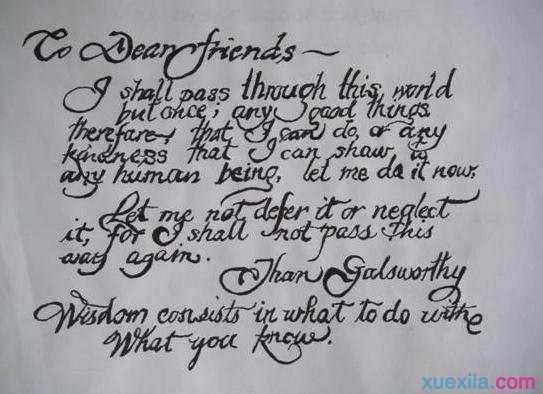 To Dear friends —
I shall pass through this world
but once; any good things
therefare, that I can do, or any
kindness that I can shaw to
any human being, let me do it now.
Let me not defer it or neglect
it, for I shall not pass this
way again.
Jhan Galsworthy
Wisdom consists in what to do withe
What you know.
xuexila.com